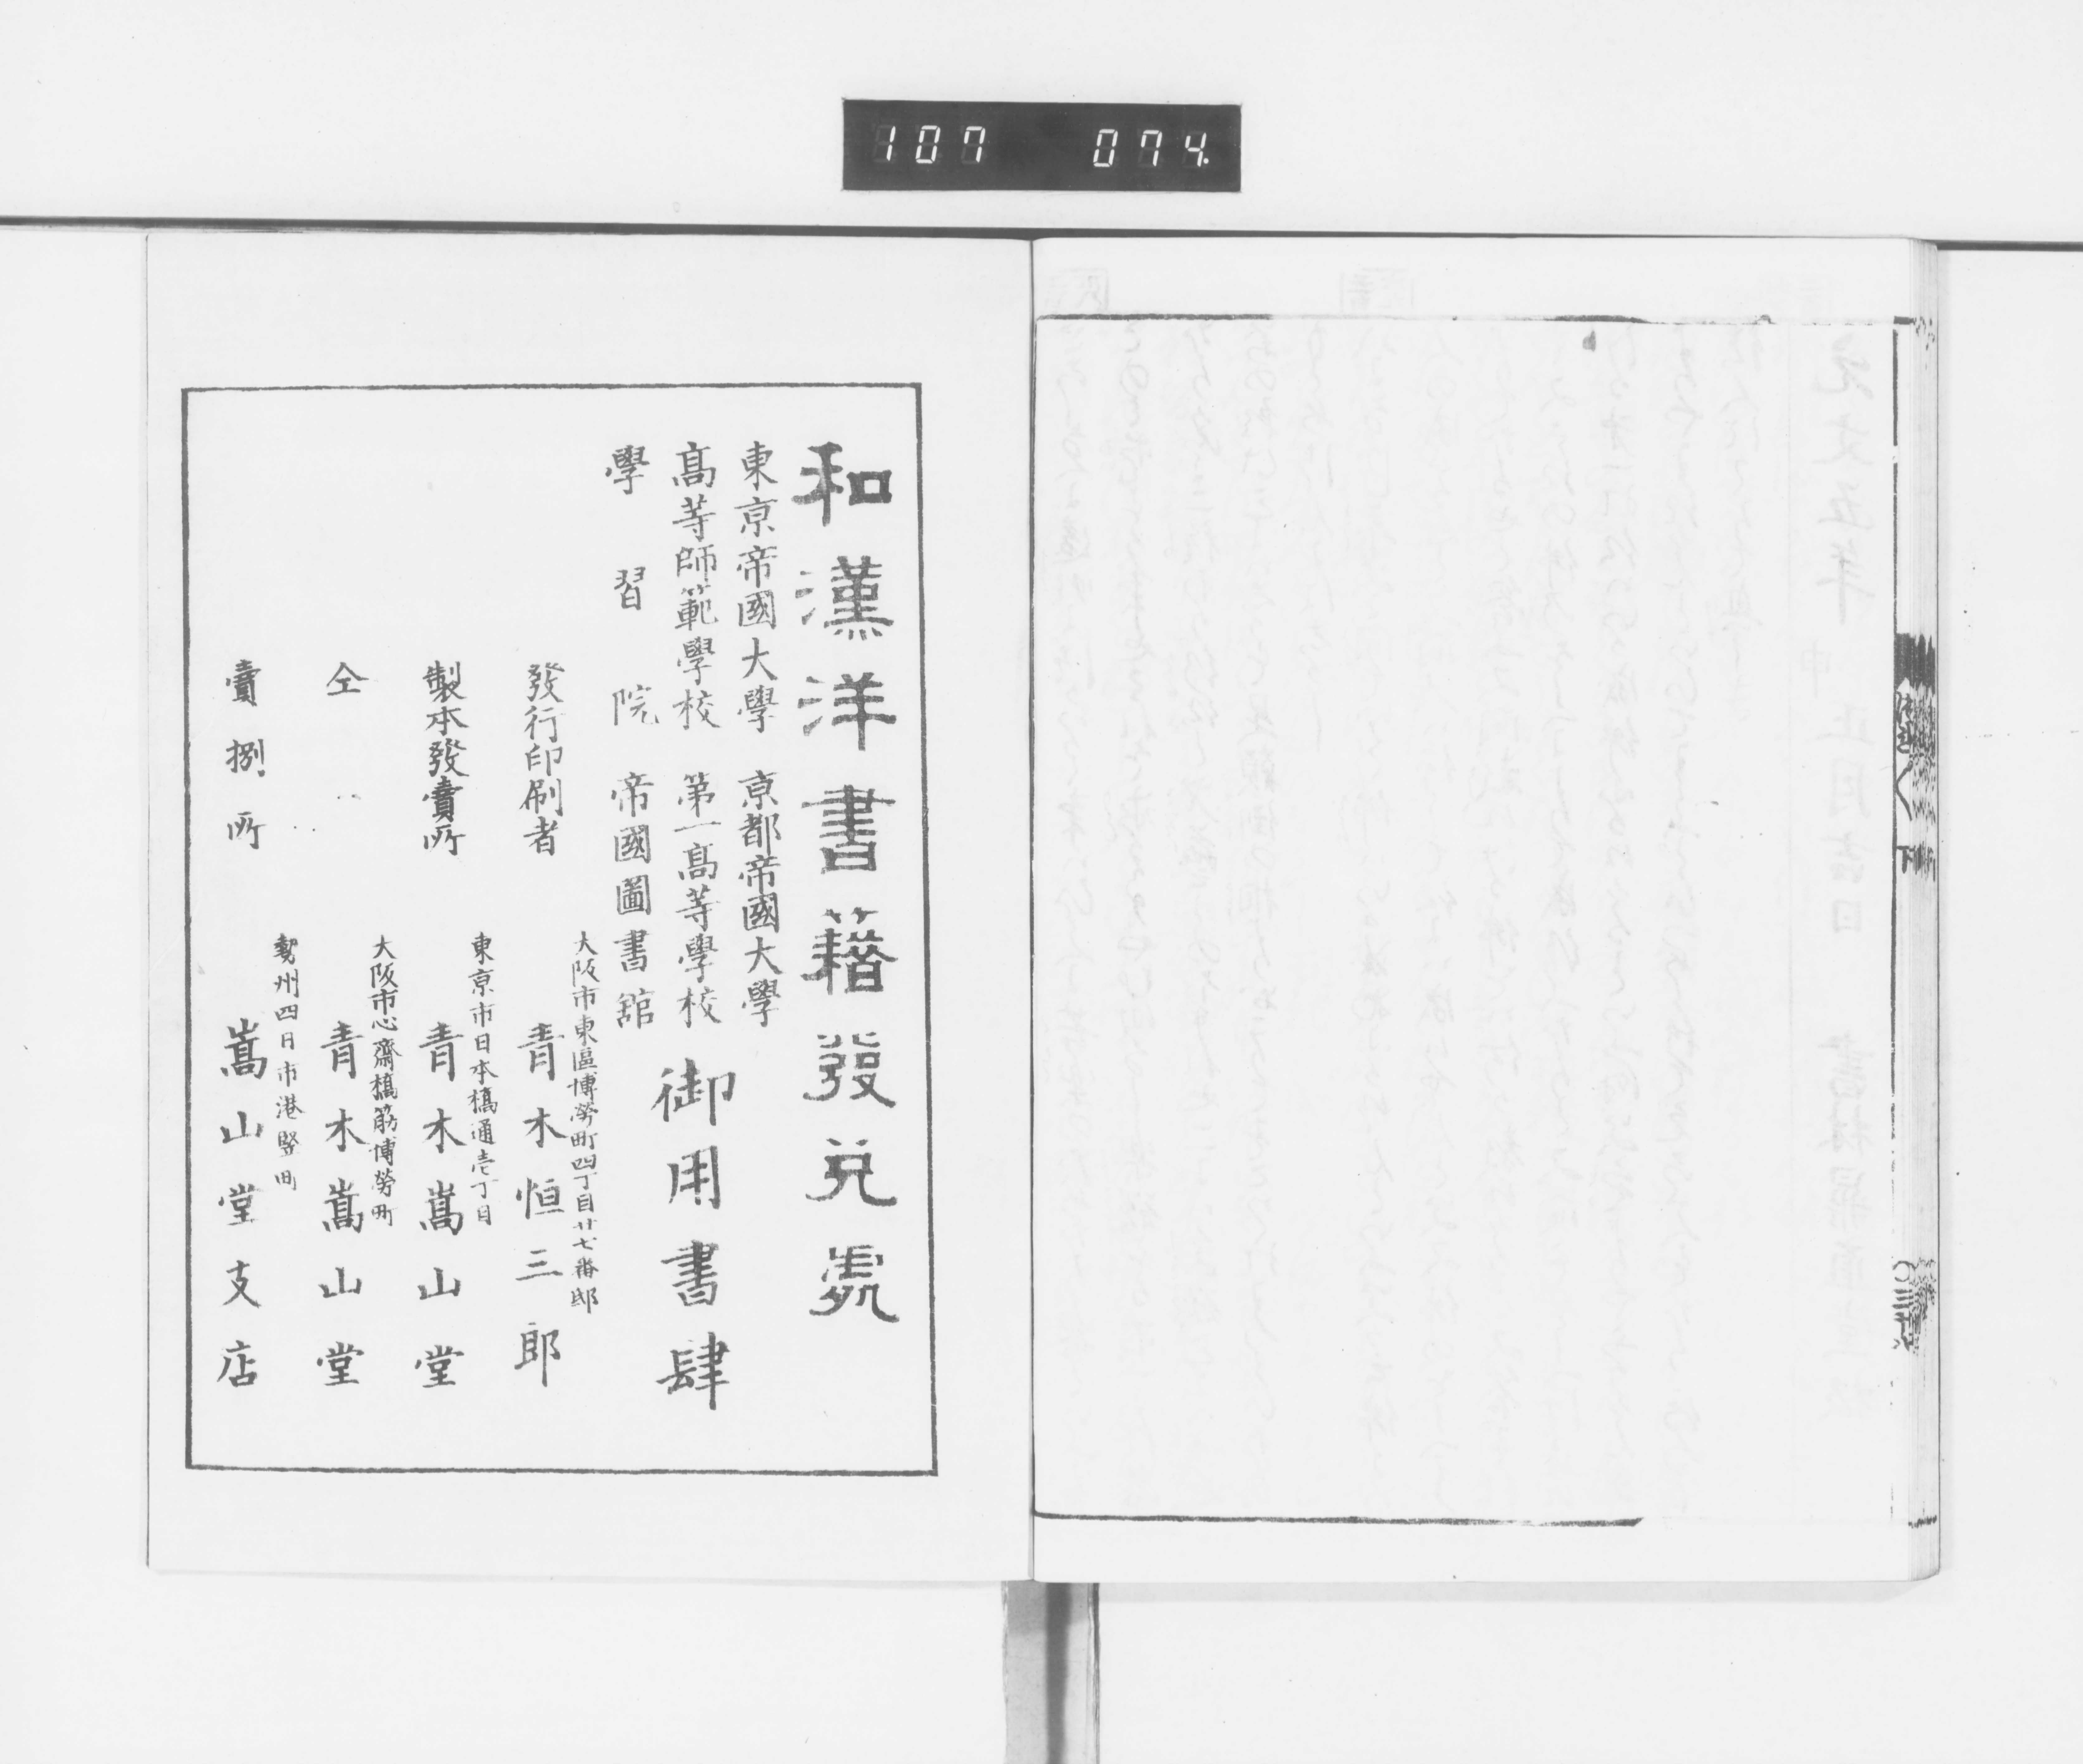 107 074
下
和漢洋書籍發兌處
東京帝國大學 京都帝國大學
高等師範學校 第一高等學校
學習院 帝國圖書舘
御用書肆
大阪市東區博勞町四丁目廿七番邸
發行印刷者 青木恒三郎
東京市日本橋通壱丁目
製本發賣所 青木嵩山堂
大阪市心齋橋筋博勞町
仝 青木嵩山堂
勢州四日市港竪町
賣捌所 嵩山堂支店